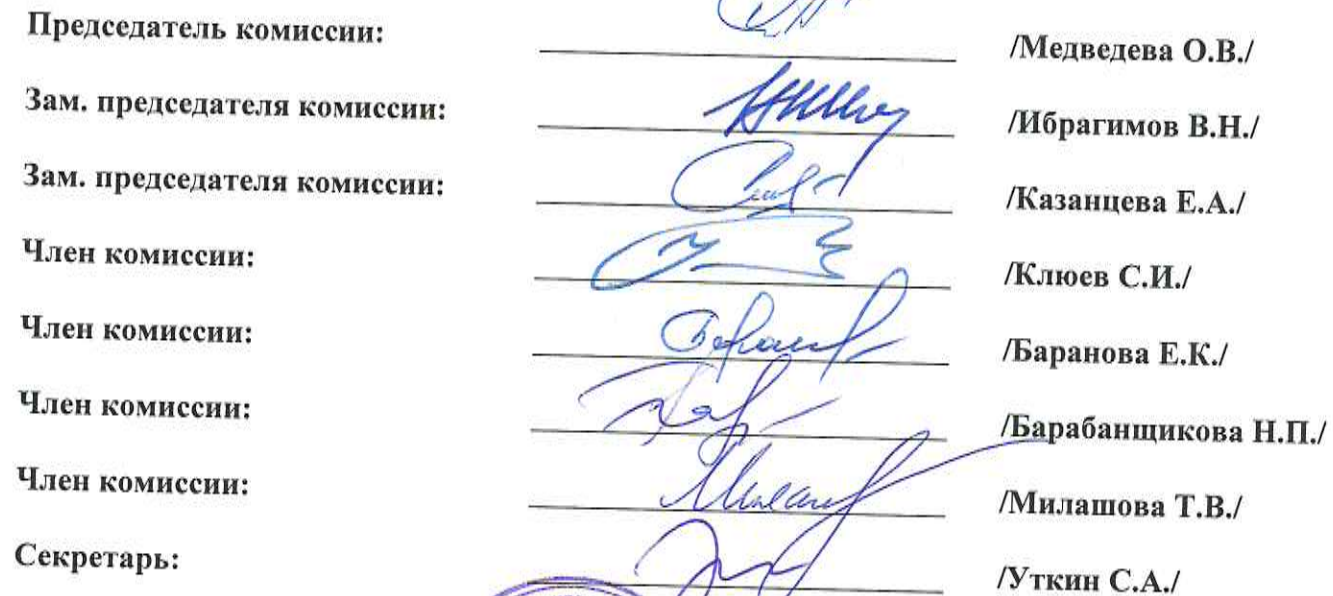 Председатель комиссии: /Медведева О.В./
Зам. председателя комиссии: /Ибрагимов В.Н./
Зам. председателя комиссии: /Казанцева Е.А./
Член комиссии: /Клюев С.И./
Член комиссии: /Баранова Е.К./
Член комиссии: /Барабанщикова Н.П./
Член комиссии: /Милашова Т.В./
Секретарь: /Уткин С.А./